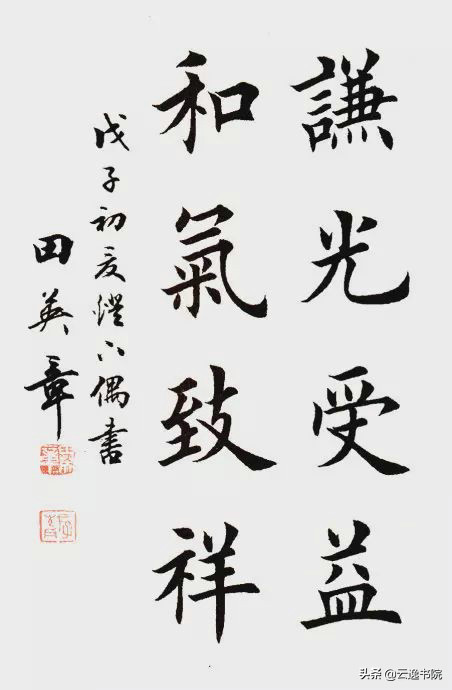 謙光受益
和氣致祥
戊子初夏燈下偶書
田英章
头条@云逸书院